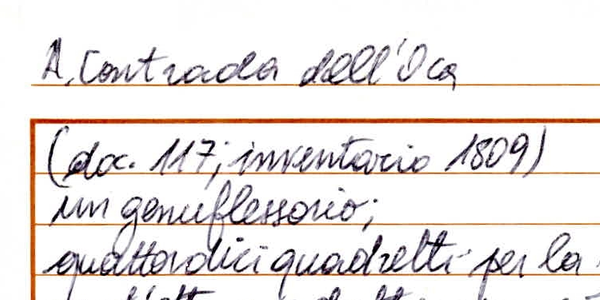 A. Contrada dell'Oca
(doc. 117; inventario 1809)
un genuflessorio;
quattordici quadretti per la